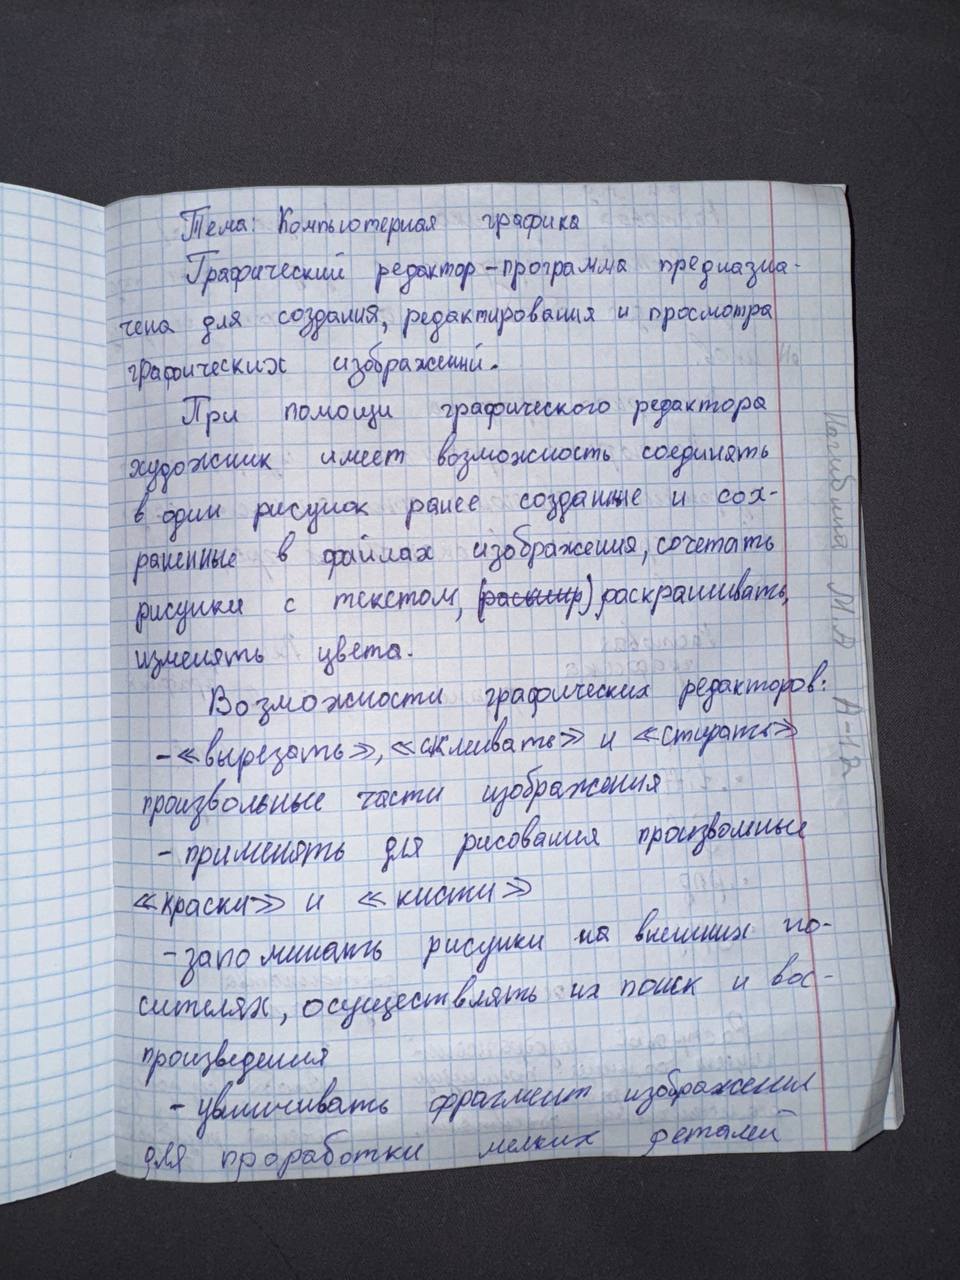 Тема: Компьютерная графика
Графический редактор - программа предназна-
чена для создания, редактирования и просмотра
графических изображений.
При помощи графического редактора
художник имеет возможность соединять
в один рисунок ранее созданные и сох-
раненные в файлах изображения, сочетать
рисунки с текстом, раскрашивать,
изменять цвета.
Возможности графических редакторов:
- «вырезать», «склеивать» и «стирать»
произвольные части изображения
- применять для рисования произвольные
«краски» и «кисти»
- запоминать рисунки на внешних но-
сителях, осуществлять их поиск и вос-
произведения
- увеличивать фрагмент изображения
для проработки мелких деталей
М.А А-12